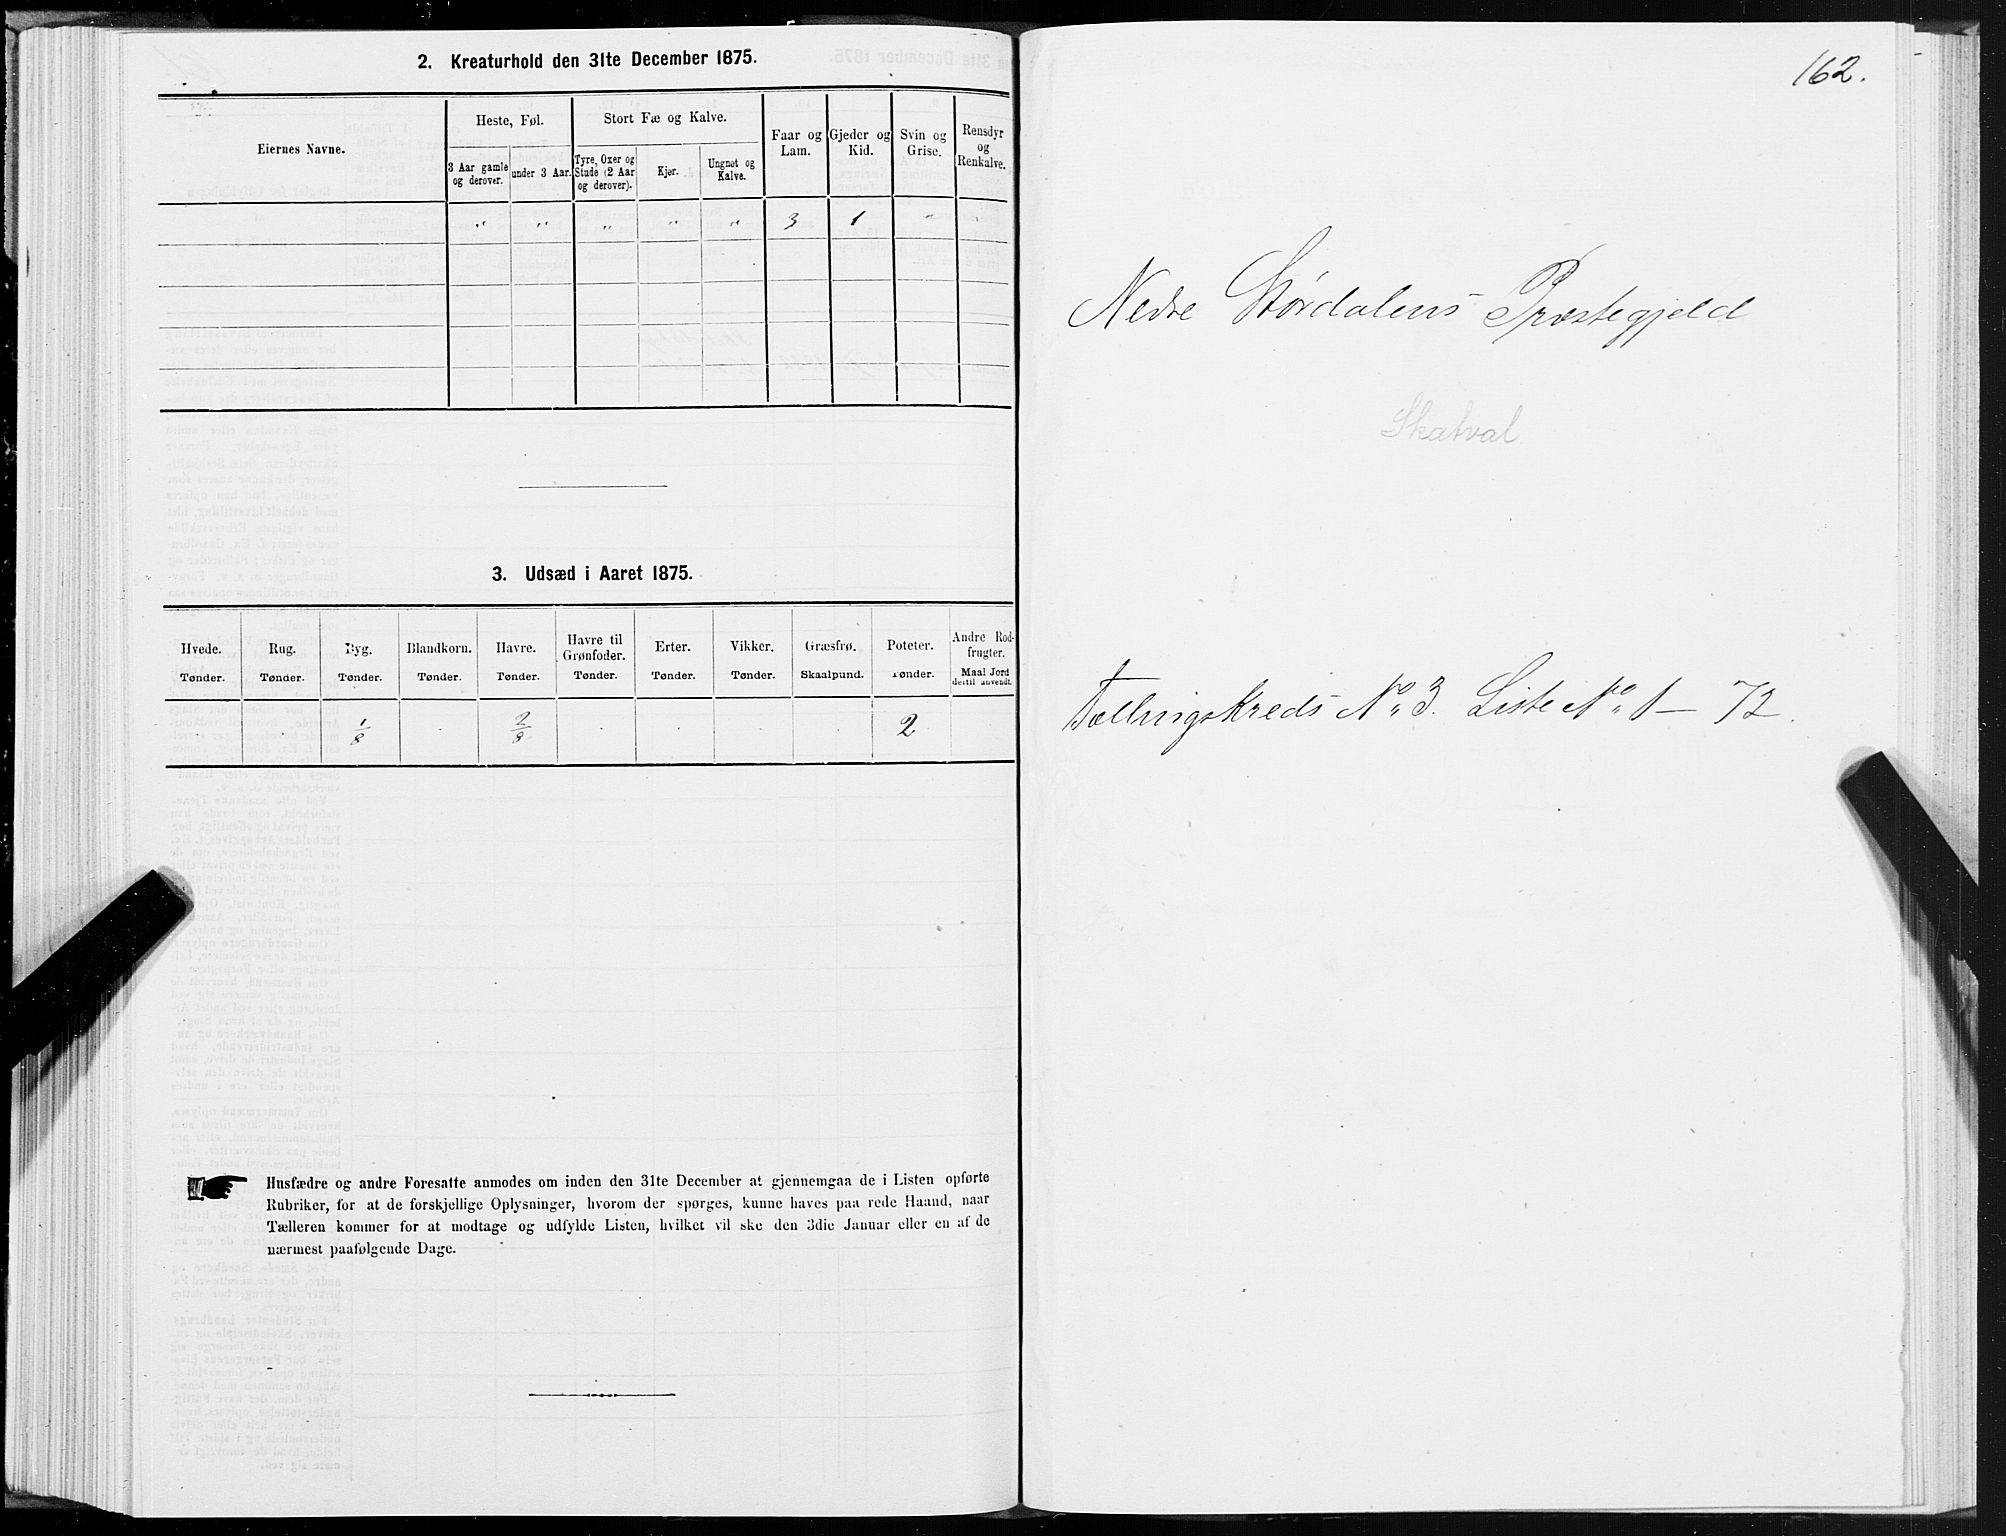 2. Kreaturhold den 31te December 1875.
Eiernes Navne.
Heste, Føl.
3 Aar gamle og derover.
under 3 Aar.
Stort Fæ og Kalve.
Tyre, Oxer og Stude (2 Aar og derover).
Kjør.
Ungnøt og Kalve.
Faar og Lam.
Gjeder og Kid.
Svin og Grise.
Rensdyr og Renkalve.
" " " " " 3 1 " "
3. Udsæd i Aaret 1875.
Hvede. Rug. Byg. Blandkorn. Havre. Havre til Grønfoder. Erter. Vikker. Græsfrø. Poteter. Andre Rodfrugter.
Tønder. Tønder. Tønder. Tønder. Tønder. Tønder. Tønder. Tønder. Skaalpund. Tønder. Maal Jord dertil anvendt.
1/8 2/8 2
Husfædre og andre Foresatte anmodes om inden den 31te December at gjennemgaa de i Listen opførte
Rubriker, for at de forskjellige Oplysninger, hvorom der spørges, kunne haves paa rede Haand, naar
Tælleren kommer for at modtage og udfylde Listen, hvilket vil ske den 3die Januar eller en af de
nærmest paafølgende Dage.
162.
Nedre Størdalens Præstegjeld
Skatval
Tællingskreds No. 3. Liste No. 1 - 72.